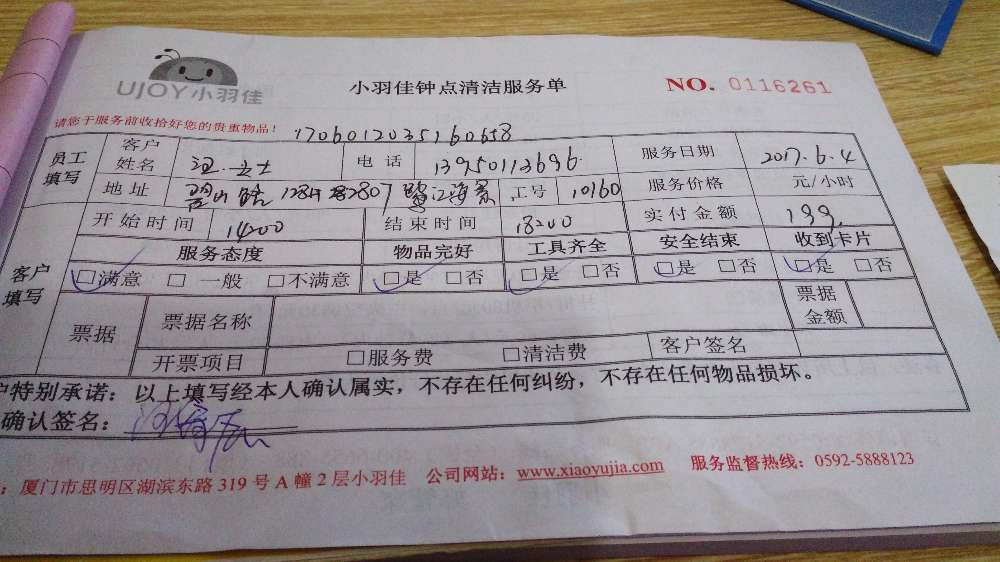 UJOY小羽佳
小羽佳钟点清洁服务单
NO. 0116261
请您于服务前收拾好您的贵重物品!
1706012035160658
员工填写
客户姓名 汪女士 电话 13950113696 服务日期 2017.6.4
地址 128号 2807 鹭江海景 工号 10160 服务价格 元/小时
客户填写
开始时间 14:00 结束时间 18:00 实付金额 199
服务态度 物品完好 工具齐全 安全结束 收到卡片
□满意 □一般 □不满意 □是 □否 □是 □否 □是 □否 □是 □否
票据 票据名称 票据金额
开票项目 □服务费 □清洁费 客户签名
户特别承诺：以上填写经本人确认属实，不存在任何纠纷，不存在任何物品损坏。
确认签名：
：厦门市思明区湖滨东路 319 号 A 幢 2 层小羽佳 公司网站：www.xiaoyujia.com 服务监督热线：0592-5888123